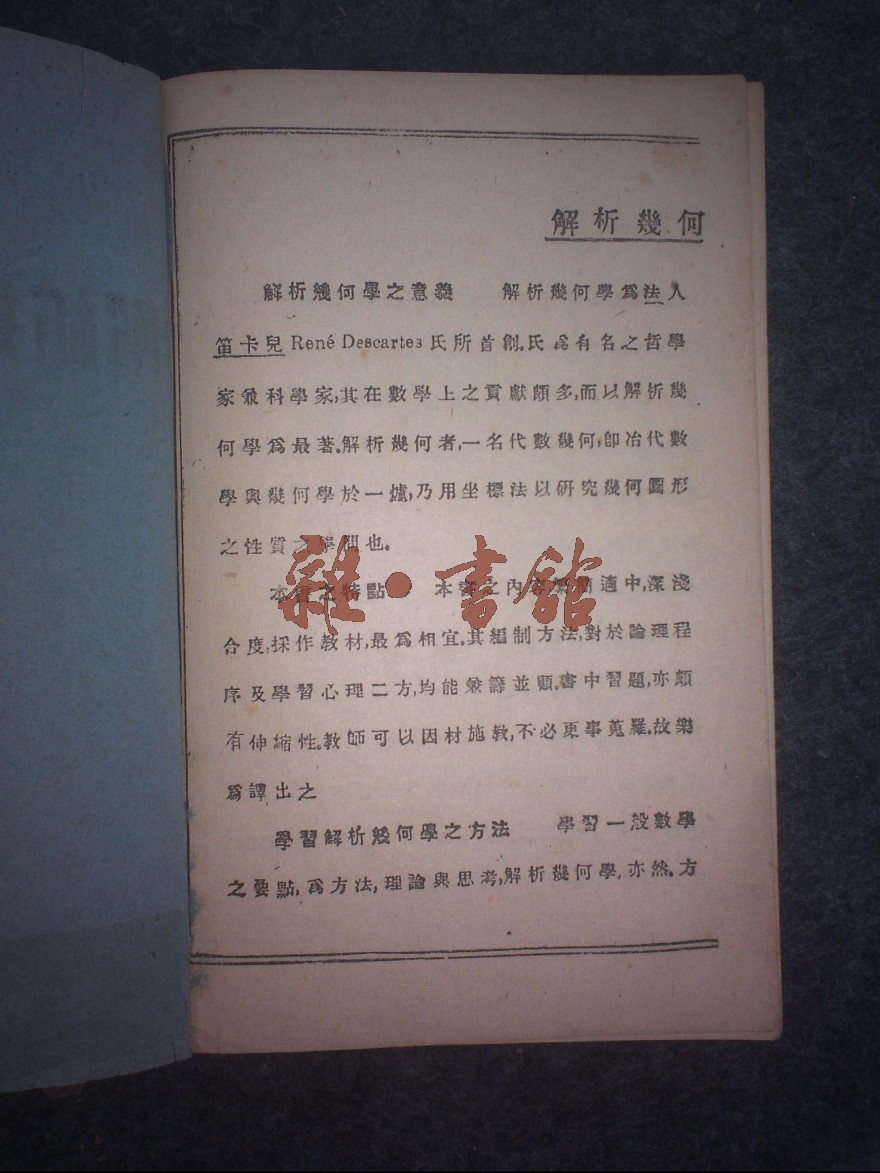 解析幾何
解析幾何學之意義 解析幾何學爲法人
笛卡兒 René Descartes 氏所首創.氏爲有名之哲學
家兼科學家,其在數學上之貢獻頗多,而以解析幾
何學爲最著.解析幾何者,一名代數幾何,即冶代數
學與幾何學於一爐,乃用坐標法以研究幾何圖形
之性質之學問也.
本書之特點 本書之內容繁簡適中,深淺
合度,採作教材,最爲相宜.其編制方法,對於論理程
序及學習心理二方,均能兼籌並顧.書中習題,亦頗
有伸縮性.教師可以因材施教,不必更事蒐羅.故樂
爲譯出之
學習解析幾何學之方法 學習一般數學
之要點,爲方法,理論與思考,解析幾何學,亦然.方
雜·書館